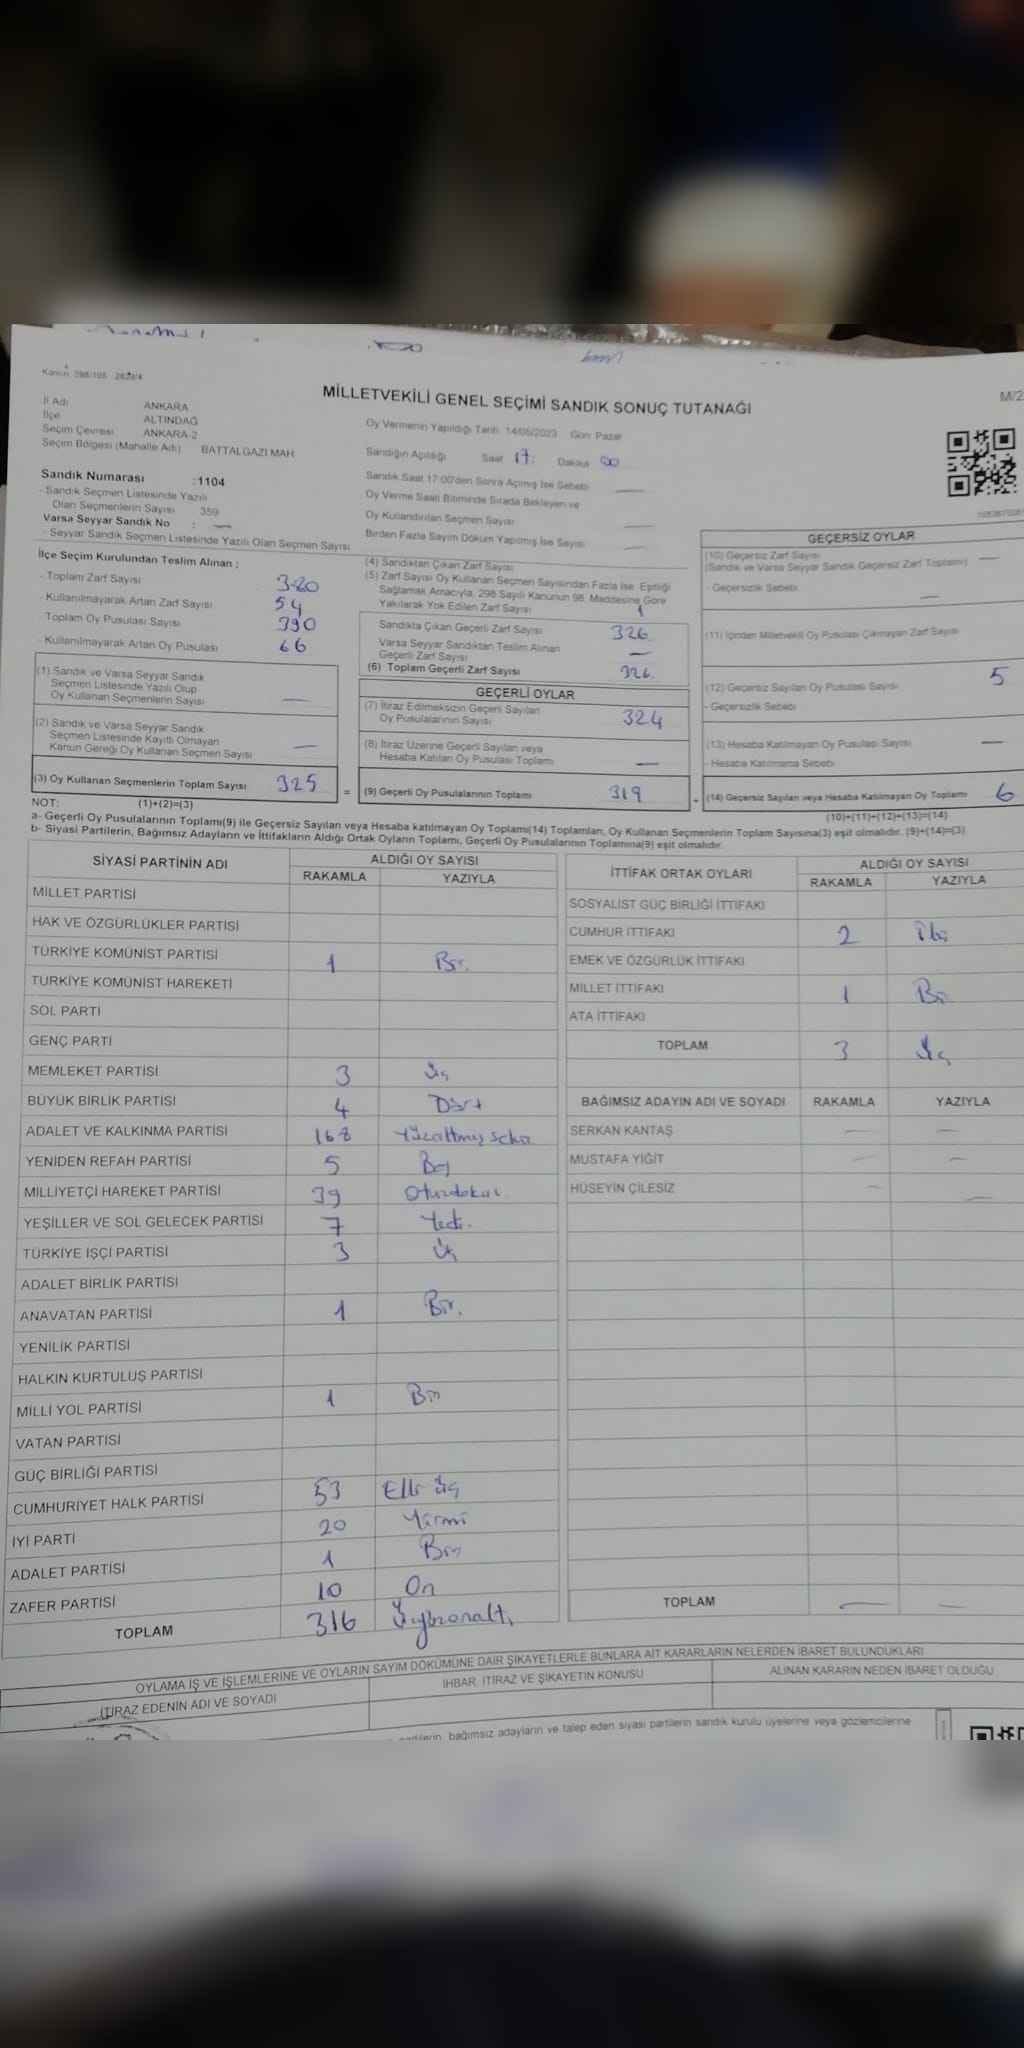 MİLLETVEKİLİ GENEL SEÇİMİ SANDIK SONUÇ TUTANAĞI
M/2
İl Adı ANKARA
İlçe ALTINDAĞ
Seçim Çevresi ANKARA-2
Seçim Bölgesi (Mahalle Adı) BATTALGAZİ MAH
Oy Vermenin Yapıldığı Tarih 14/05/2023 Gün Pazar
Sandığın Açıldığı Saat 17: Dakika 00
Sandık Numarası :1104
- Sandık Seçmen Listesinde Yazılı
Olan Seçmenlerin Sayısı 359
Varsa Seyyar Sandık No : —
- Seyyar Sandık Seçmen Listesinde Yazılı Olan Seçmen Sayısı
Sandık Saat 17:00'den Sonra Açılmış İse Sebebi —
Oy Verme Saati Bitiminde Sırada Bekleyen ve
Oy Kullandırılan Seçmen Sayısı —
Birden Fazla Sayım Döküm Yapılmış İse Sayısı —
İlçe Seçim Kurulundan Teslim Alınan ;
- Toplam Zarf Sayısı 380
- Kullanılmayarak Artan Zarf Sayısı 54
- Toplam Oy Pusulası Sayısı 390
- Kullanılmayarak Artan Oy Pusulası 66
(1) Sandık ve Varsa Seyyar Sandık
Seçmen Listesinde Yazılı Olup
Oy Kullanan Seçmenlerin Sayısı —
(2) Sandık ve Varsa Seyyar Sandık
Seçmen Listesinde Kayıtlı Olmayan
Kanun Gereği Oy Kullanan Seçmen Sayısı —
(3) Oy Kullanan Seçmenlerin Toplam Sayısı 325 =
(4) Sandıktan Çıkan Zarf Sayısı
(5) Zarf Sayısı Oy Kullanan Seçmen Sayısından Fazla İse Eşitliği
Sağlamak Amacıyla, 298 Sayılı Kanunun 98. Maddesine Göre
Yakılarak Yok Edilen Zarf Sayısı 1
Sandıkta Çıkan Geçerli Zarf Sayısı 326
Varsa Seyyar Sandıktan Teslim Alınan
Geçerli Zarf Sayısı —
(6) Toplam Geçerli Zarf Sayısı 326
GEÇERLİ OYLAR
(7) İtiraz Edilmeksizin Geçerli Sayılan
Oy Pusulalarının Sayısı 324
(8) İtiraz Üzerine Geçerli Sayılan veya
Hesaba Katılan Oy Pusulası Toplamı —
(9) Geçerli Oy Pusulalarının Toplamı 319
GEÇERSİZ OYLAR
(10) Geçersiz Zarf Sayısı —
(Sandık ve Varsa Seyyar Sandık Geçersiz Zarf Toplamı)
- Geçersizlik Sebebi —
(11) İçinden Milletvekili Oy Pusulası Çıkmayan Zarf Sayısı
(12) Geçersiz Sayılan Oy Pusulası Sayısı 5
- Geçersizlik Sebebi
(13) Hesaba Katılmayan Oy Pusulası Sayısı —
- Hesaba Katılmama Sebebi
(14) Geçersiz Sayılan veya Hesaba Katılmayan Oy Toplamı 6
NOT: (1)+(2)=(3)
(10)+(11)+(12)+(13)=(14)
a- Geçerli Oy Pusulalarının Toplamı(9) ile Geçersiz Sayılan veya Hesaba katılmayan Oy Toplamı(14) Toplamları, Oy Kullanan Seçmenlerin Toplam Sayısına(3) eşit olmalıdır. (9)+(14)=(3)
b- Siyasi Partilerin, Bağımsız Adayların ve İttifakların Aldığı Ortak Oyların Toplamı, Geçerli Oy Pusulalarının Toplamına(9) eşit olmalıdır.
SİYASİ PARTİNİN ADI ALDIĞI OY SAYISI
RAKAMLA YAZIYLA
MİLLET PARTİSİ
HAK VE ÖZGÜRLÜKLER PARTİSİ
TÜRKİYE KOMÜNİST PARTİSİ 1 Bir.
TÜRKİYE KOMÜNİST HAREKETİ
SOL PARTİ
GENÇ PARTİ
MEMLEKET PARTİSİ 3 Üç
BÜYÜK BİRLİK PARTİSİ 4 Dört
ADALET VE KALKINMA PARTİSİ 168 Yüzaltmış sekiz
YENİDEN REFAH PARTİSİ 5 Beş
MİLLİYETÇİ HAREKET PARTİSİ 39 Otuzdokuz
YEŞİLLER VE SOL GELECEK PARTİSİ 7 Yedi.
TÜRKİYE İŞÇİ PARTİSİ 3 Üç
ADALET BİRLİK PARTİSİ
ANAVATAN PARTİSİ 1 Bir.
YENİLİK PARTİSİ
HALKIN KURTULUŞ PARTİSİ
MİLLİ YOL PARTİSİ 1 Bir
VATAN PARTİSİ
GÜÇ BİRLİĞİ PARTİSİ
CUMHURİYET HALK PARTİSİ 53 Elli üç
İYİ PARTİ 20 Yirmi
ADALET PARTİSİ 1 Bir
ZAFER PARTİSİ 10 On
TOPLAM 316 Üçyüzonaltı
İTTİFAK ORTAK OYLARI ALDIĞI OY SAYISI
RAKAMLA YAZIYLA
SOSYALİST GÜÇ BİRLİĞİ İTTİFAKI
CUMHUR İTTİFAKI 2 İki
EMEK VE ÖZGÜRLÜK İTTİFAKI
MİLLET İTTİFAKI 1 Bir
ATA İTTİFAKI
TOPLAM 3 Üç
BAĞIMSIZ ADAYIN ADI VE SOYADI RAKAMLA YAZIYLA
SERKAN KANTAŞ — —
MUSTAFA YİĞİT — —
HÜSEYİN ÇİLESİZ — —
TOPLAM — —
OYLAMA İŞ VE İŞLEMLERİNE VE OYLARIN SAYIM DÖKÜMÜNE DAİR ŞİKAYETLERLE BUNLARA AİT KARARLARIN NELERDEN İBARET BULUNDUKLARI
İTİRAZ EDENİN ADI VE SOYADI
İHBAR, İTİRAZ VE ŞİKAYETİN KONUSU
ALINAN KARARIN NEDEN İBARET OLDUĞU
partilerin, bağımsız adayların ve talep eden siyasi partilerin sandık kurulu üyelerine veya gözlemcilerine